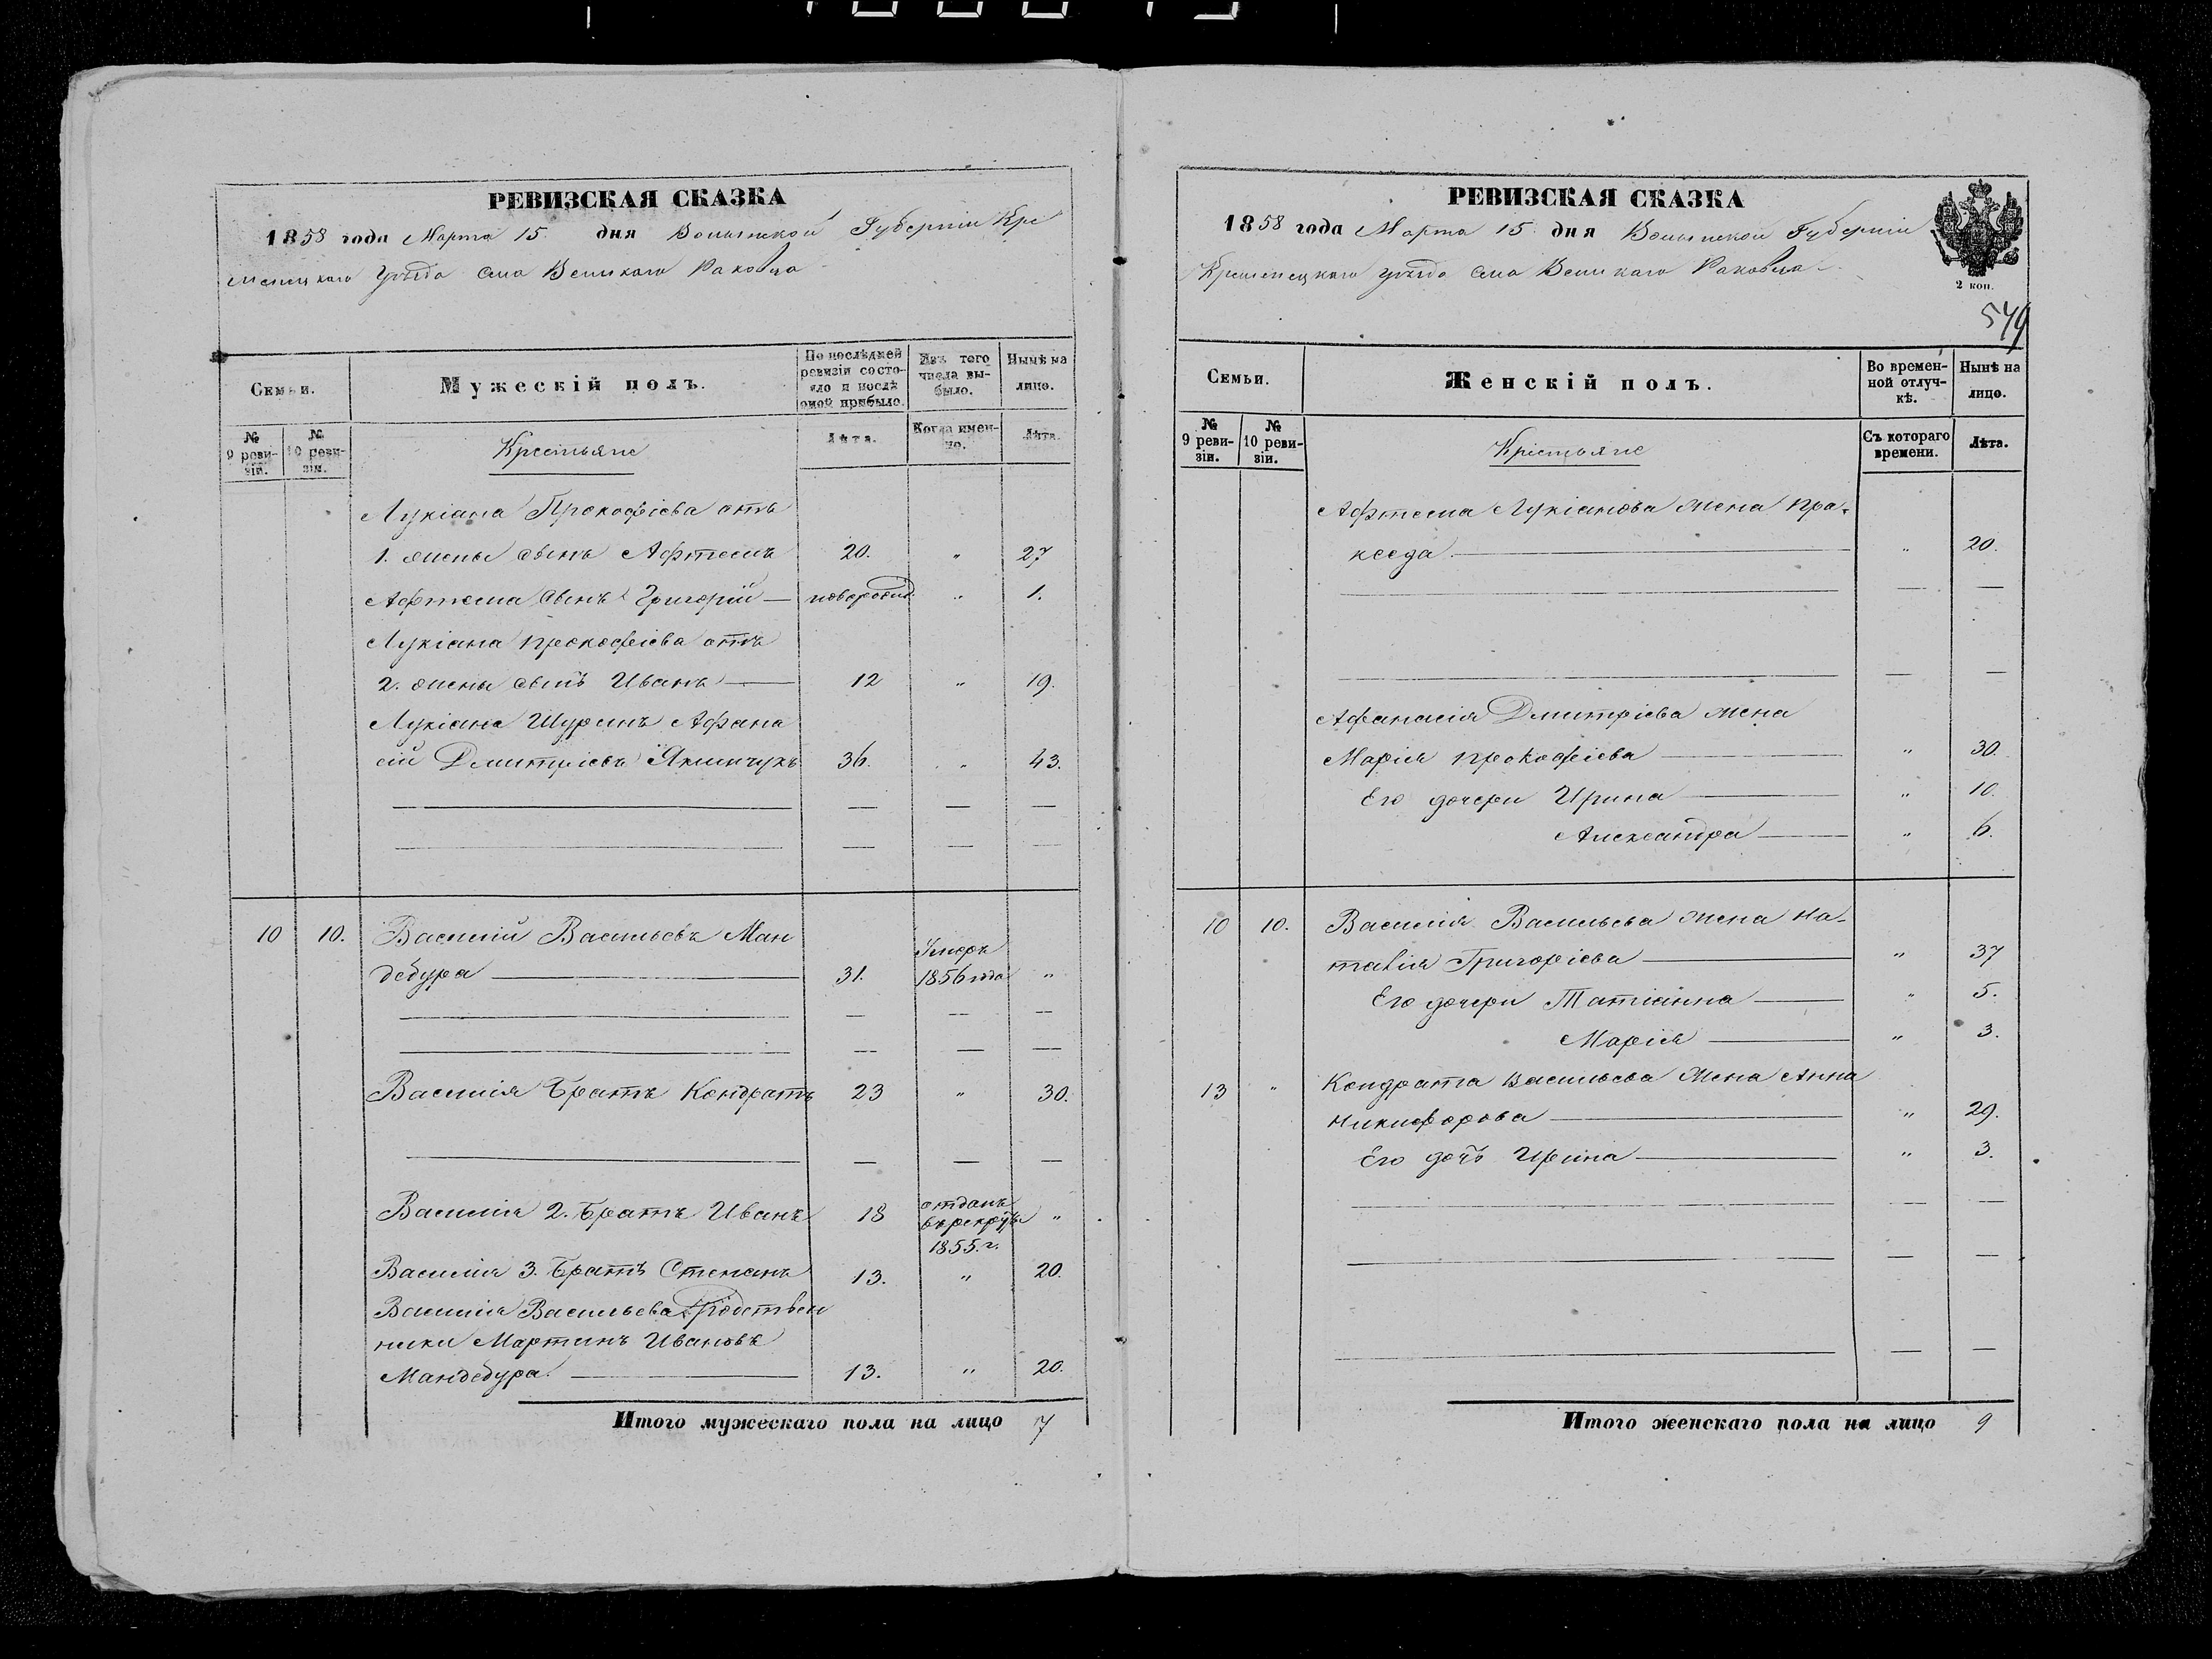 РЕВИЗСКАЯ СКАЗКА
1858 года Марта 15 дня Волынской Губерніи Кре
менецкаго уѣзда села Великаго Раковца
Семьи.
Мужескій полъ.
По послѣдней ревизіи состояло и послѣ оной прибыло.
Изъ того числа выбыло.
Нынѣ на лицо.
№ 9 ревизіи.
№ 10 ревизіи.
Крестьяне
Лѣта.
Когда именно.
Лѣта.
Лукіана Прокофіева отъ
1. жены сынъ Афтемъ 20. " 27
Афтема сынъ Григорій — новорожд. " 1.
Лукіана Прокофіева отъ
2. жены сынъ Иванъ — 12 " 19.
Лукіана Шуринъ Афана
сій Дмитріевъ Якимчукъ 36. " 43.
10 10. Василій Васильевъ Ман
дебура — 31. Умеръ 1856 года "
Василія Братъ Кондратъ 23 " 30.
Василія 2. Братъ Иванъ 18 отданъ въ рекруты 1855. г. "
Василія 3. Братъ Степанъ 13. " 20.
Василія Васильева родствен
ники Мартинъ Ивановъ
Мандебура. — 13. " 20.
Итого мужескаго пола на лицо 7
РЕВИЗСКАЯ СКАЗКА
1858 года Марта 15 дня Волынской Губерніи
Кременецкаго уѣзда села Великаго Раковца
2 коп.
579
Семьи.
Женскій полъ.
Во временной отлучкѣ.
Нынѣ на лицо.
№ 9 ревизіи.
№ 10 ревизіи.
Крестьяне
Съ котораго времени.
Лѣта.
Афтема Лукіанова жена Пра-
кседа — " 20.
Афанасія Дмитріева жена
Марія Прокофіева — " 30.
Его дочери Ирина — " 10.
Александра — " 6.
10 10. Василія Васильева жена На-
талія Григоріева — " 37
Его дочери Татіанна — " 5.
Марія — " 3.
13 " Кондрата Васильева жена Анна
Никифорова — " 29.
Его дочь Ирина — " 3.
Итого женскаго пола на лицо 9